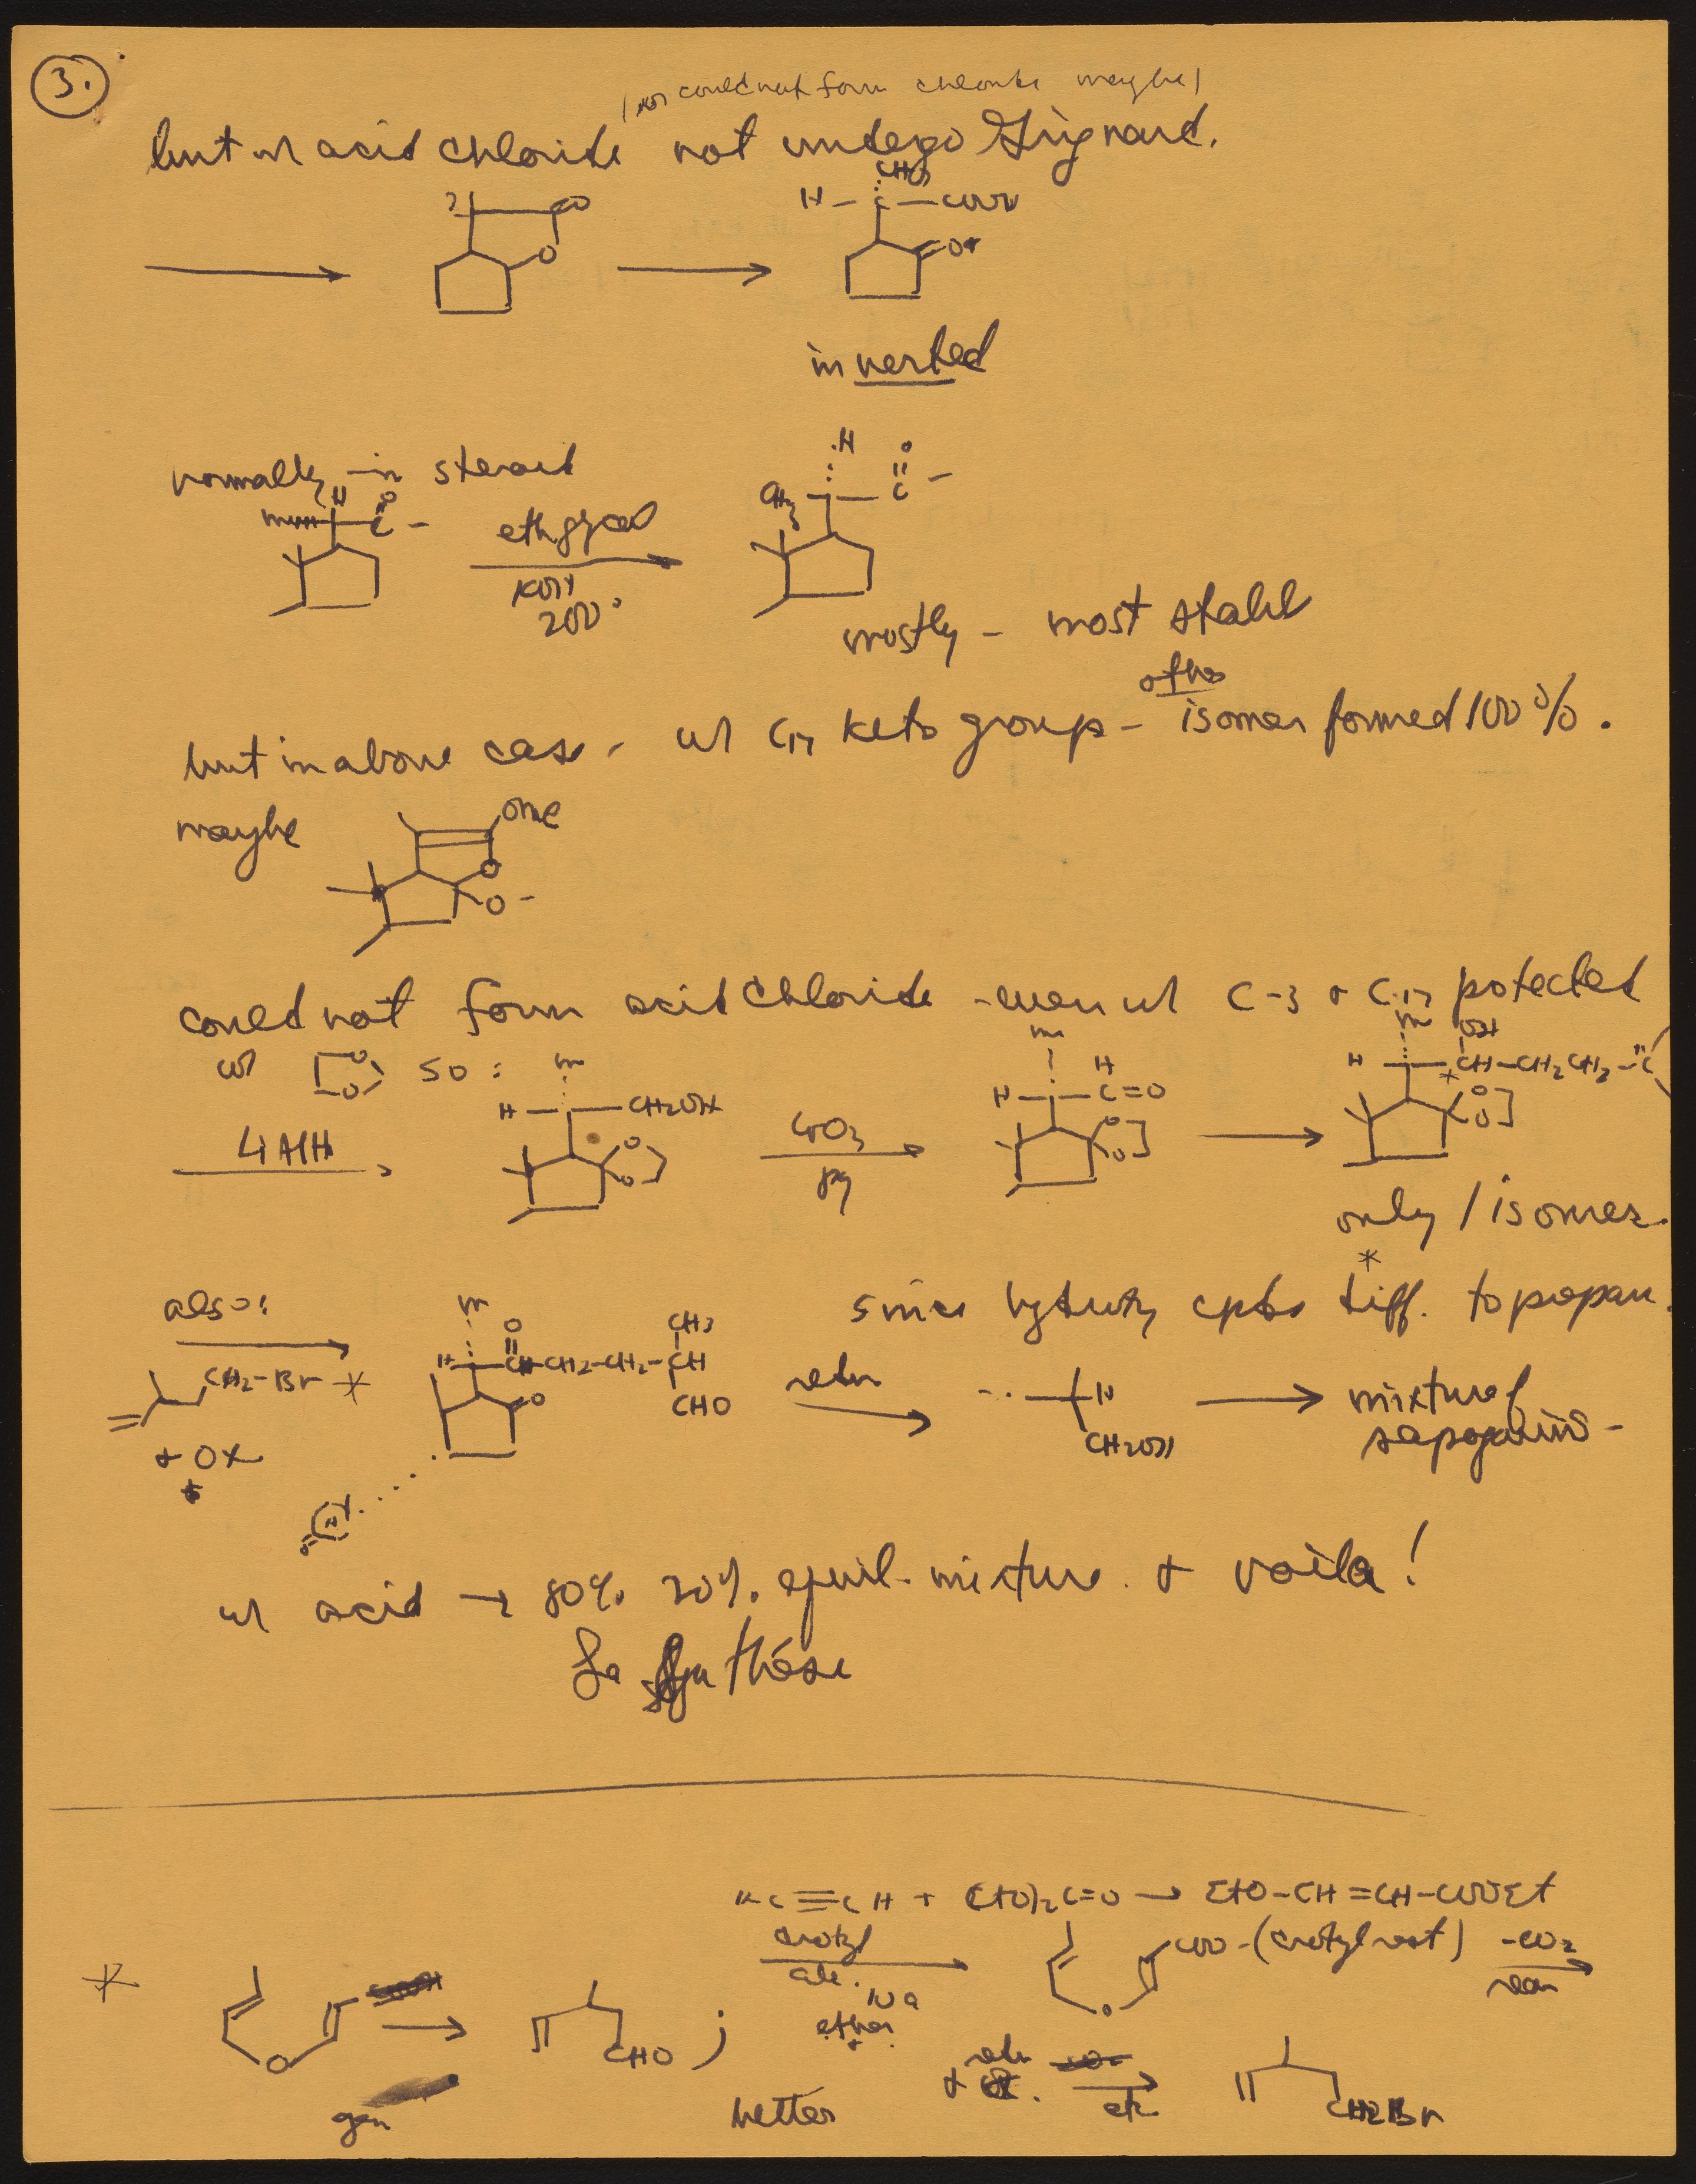 3.
could not form chloride maybe)
but w/ acid chloride not undergo Grignard.
CH3
H - C - COOH
O
O
inverted
normally in steroid
H O
C -
eth glycol
KOH
200°
H O
CH3 C -
mostly - most stabl
other
but in above case - w/ C17 keto group - isomer formed 100%.
maybe
OMe
O
O -
could not form acid chloride - even w/ C-3 + C-17 protected
w/ O O so:
m
H - CH2OH
O
O
LiAlH
CrO3
py
m H
H - C=O
O
O
m OH
H - CH-CH2CH2-C
* O
O
only 1 isomer.
*
since hydroxy cpds diff. to prepar.
also:
CH2-Br *
+ Ox
m
O CH3
H CH2-CH2-CH
CHO
O
redn
H
CH2OH
mixture of
sapogenins -
w/ acid → 80% 20% equil. mixture. + voila!
La Synthése
HC≡CH + (EtO)2C=O → EtO-CH=CH-COOEt
*
O
gen
CHO ;
crotyl
alc.
Na
ether
better
COO-(crotyl rest)
O
-CO2
rearr
+ redn
etc.
CH2Br